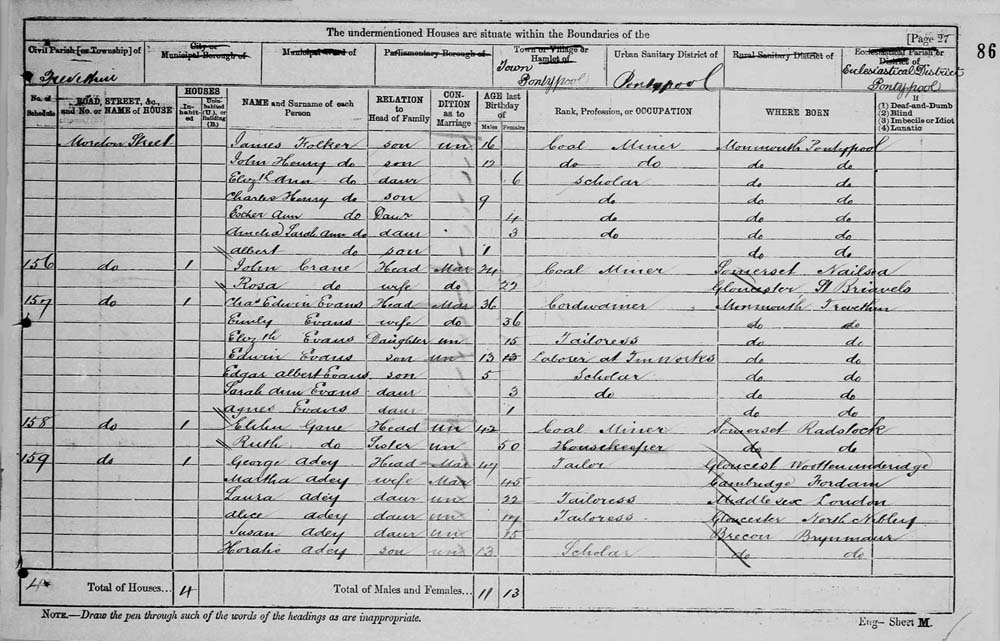 The undermentioned Houses are situate within the Boundaries of the
[Page 27
86
Civil Parish [or Township] of
City or Municipal Borough of
Municipal Ward of
Parliamentary Borough of
Town or Village or Hamlet of
Urban Sanitary District of
Rural Sanitary District of
Ecclesiastical Parish or District of
Town Pontypool
Pontypool
Ecclesiastical District Pontypool
No. of Schedule
ROAD, STREET, &c., and No. or NAME of HOUSE
HOUSES
Inhabited
Uninhabited (U.), or Building (B.)
NAME and Surname of each Person
RELATION to Head of Family
CONDITION as to Marriage
AGE last Birthday of
Males
Females
Rank, Profession, or OCCUPATION
WHERE BORN
If
(1) Deaf-and-Dumb
(2) Blind
(3) Imbecile or Idiot
(4) Lunatic
Moreton Street James Folker son un 16 Coal Miner Monmouth Pontypool
John Henry do son 12 do do do do
Elizth Ann do daur 6 scholar do do
Charles Henry do son 9 do do do
Esther Ann do Daur 4 do do do
Amelia Sarah Ann do daur 3 do do do
albert do son 1 do do
156 do 1 John Crane Head Mar 24 Coal Miner Somerset Nailsea
Rosa do wife do 22 Gloucester St Briavels
157 do 1 Chas Edwin Evans Head Mar 36 Cordwainer Monmouth Trevethin
Emily Evans wife do 36 do do
Elizth Evans Daughter un 15 Tailoress do do
Edwin Evans son un 13 Laborer at Tinworks do do
Edgar albert Evans son 5 Scholar do do
Sarah Ann Evans daur 3 do do do
agnes Evans daur 1 do do
158 do 1 Gane Head un 42 Coal Miner Somerset Radstock
Ruth do Sister un 50 Housekeeper do do
159 do 1 George Adey Head Mar 47 Tailor Gloucest
Martha Adey wife Mar 45 Cambridge Fordam
Laura Adey daur un 22 Tailoress Middlesex London
alice adey daur un Tailoress Gloucester North Nibley
Susan adey daur un 15 Brecon Brynmaur
Horatio Adey son un 13 Scholar do do
4 Total of Houses... 4 Total of Males and Females... 11 13
NOTE.—Draw the pen through such of the words of the headings as are inappropriate.
Eng— Sheet M.